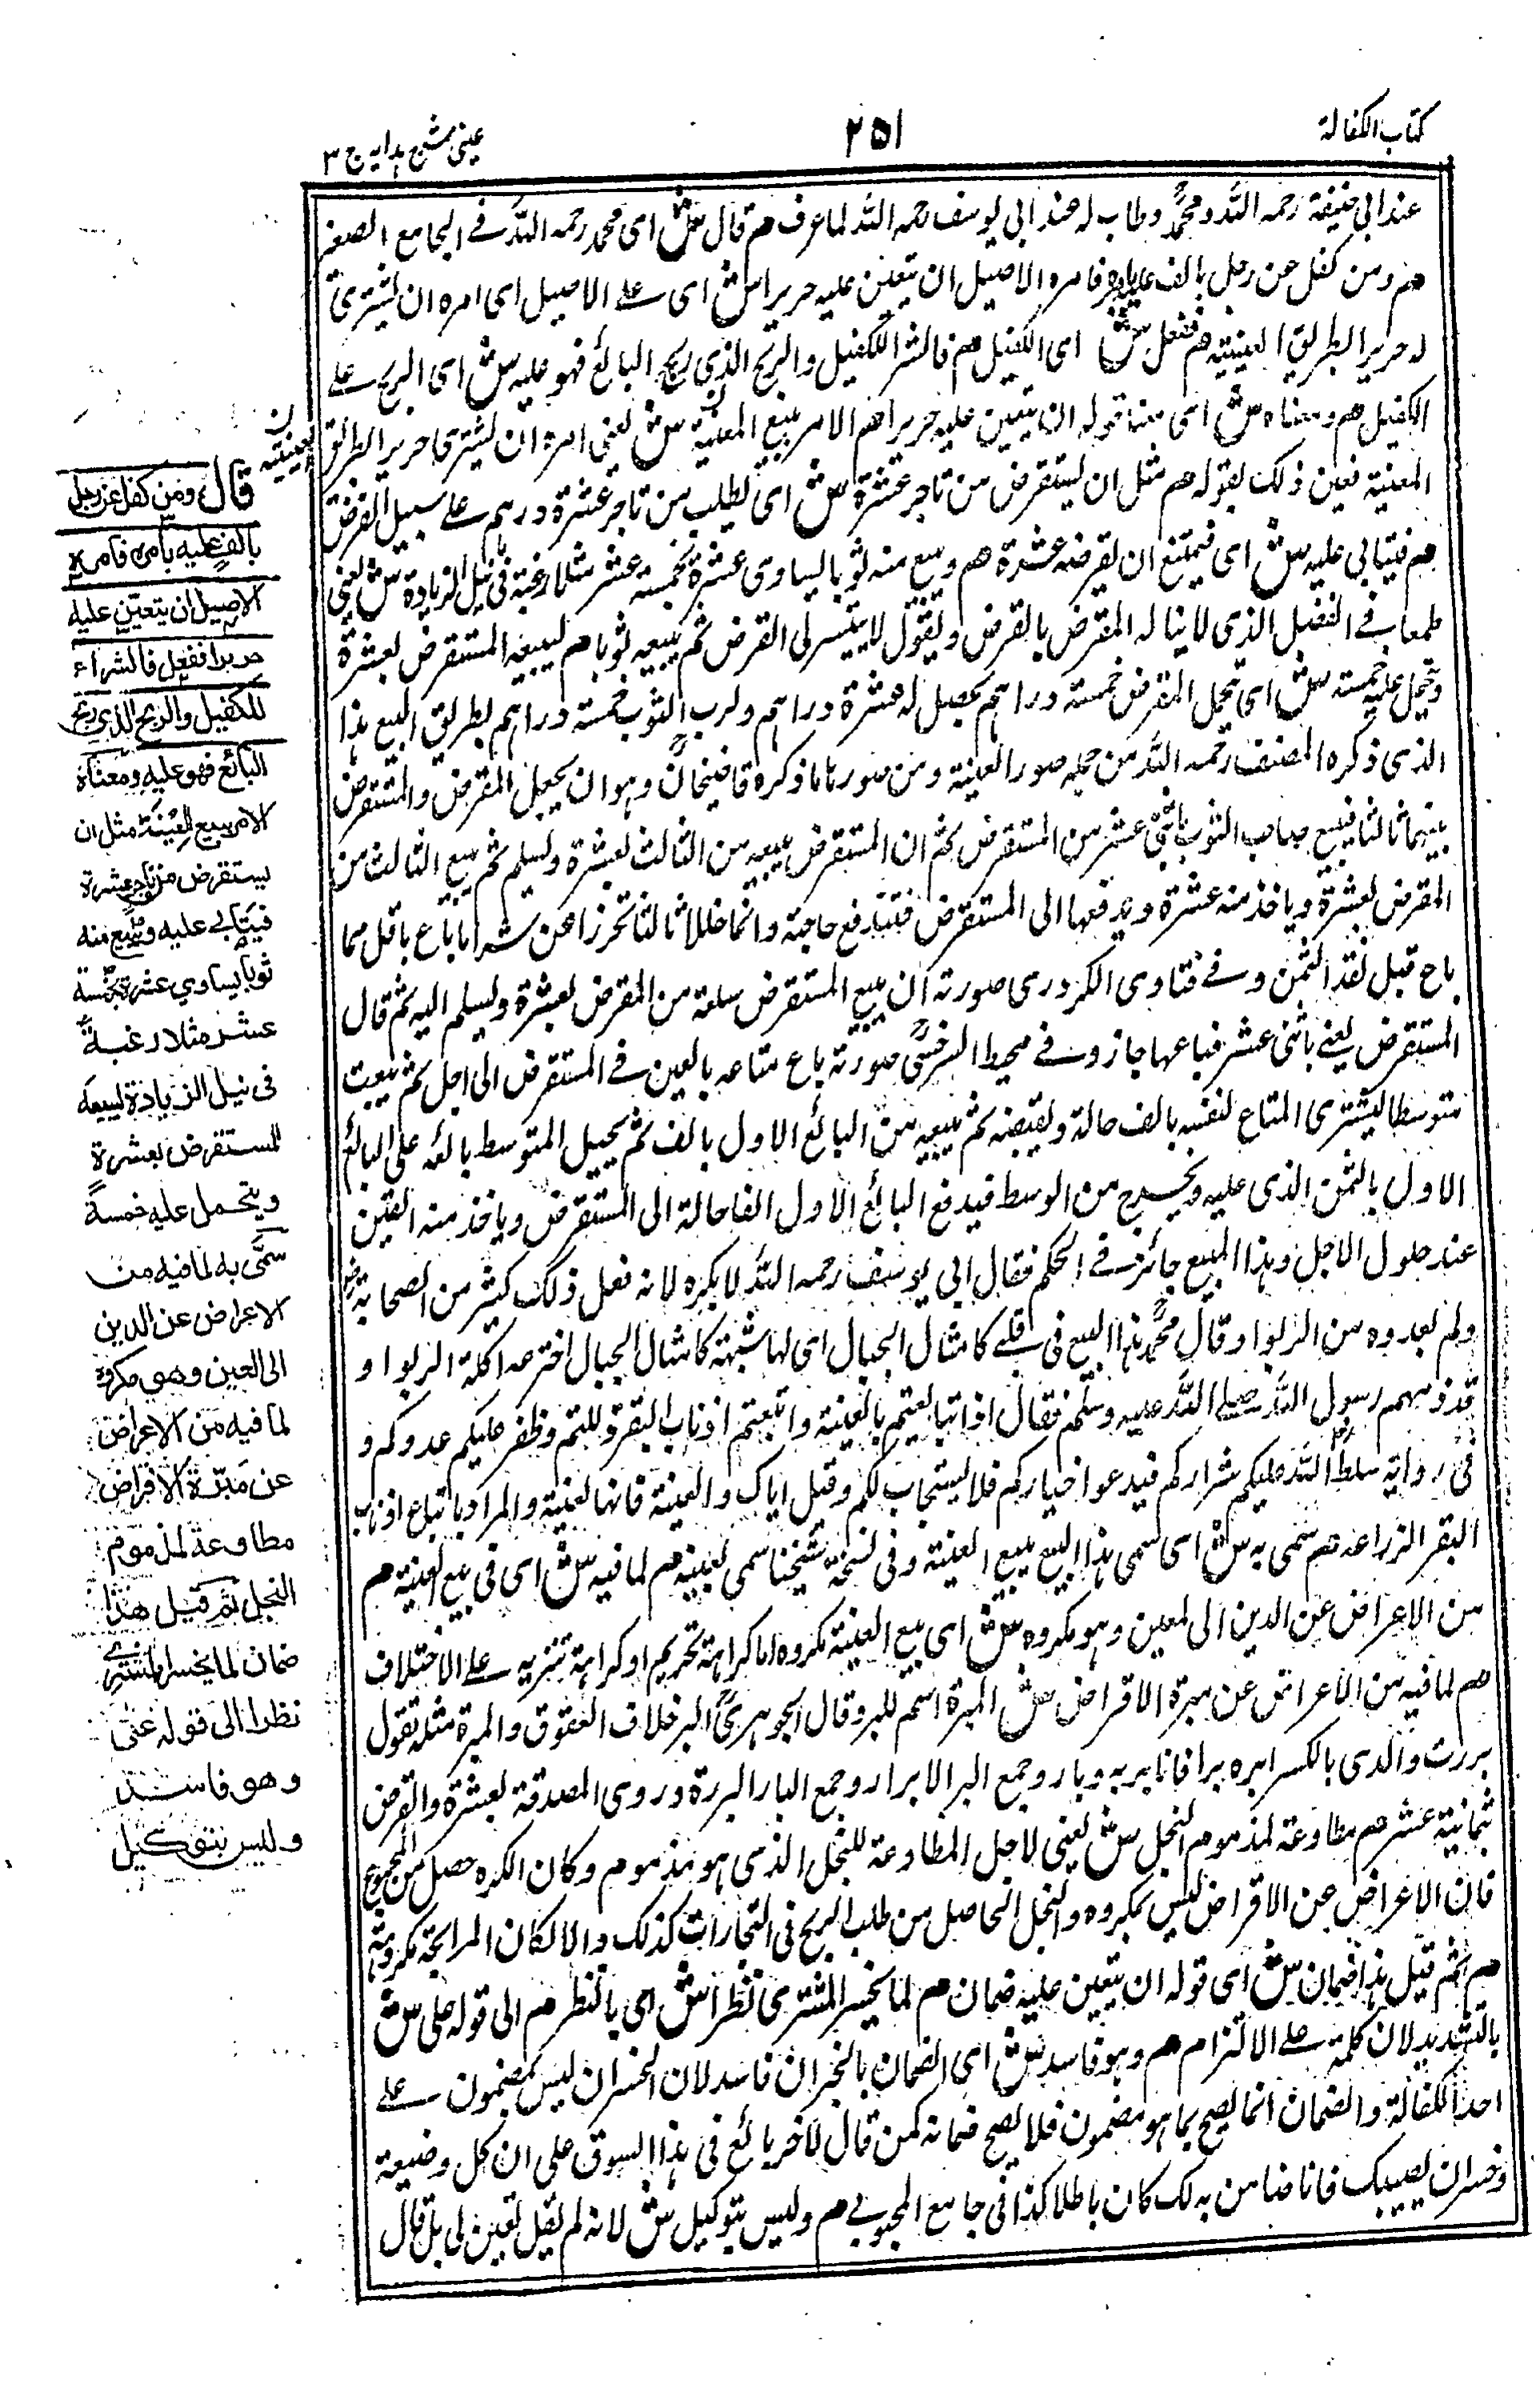 كتاب الكفالة
٢٥١
عينى شرح هدايه ج ٣
عند ابى حنيفة رحمه الله ومحمدؒ وطاب له عند ابى يوسف رحمه الله لما عرف هم قال ش اى محمد رحمه الله فى الجامع الصغير
هم ومن كفل عن رجل بالف عليه بامره فامره الاصيل ان يتعين عليه حريرا ش اى على الاصيل اى امره ان يشترى
له حريرا بطريق العينية هم ففعل ش اى الكفيل هم فالشراء للكفيل والربح الذى ربحه البائع فهو عليه ش اى الربح على
الكفيل هم ومعناه ش اى معنا قوله ان يتعين عليه حريرا هم الامر ببيع العينة ش يعنى امره ان يشترى حريرا بطريق
العينة فعين ذلك بقوله هم مثل ان يستقرض من تاجر عشرة ش اى يطلب من تاجر عشرة درهم على سبيل القرض
هم فيتابى عليه ش اى فيمتنع ان يقرضه عشرة هم ويبيع منه ثوبا يساوى عشرة بخمسة عشر مثلا رغبة فى نيل الزيادة ش يعنى
طمعا فى الفضل الذى لا يناله المقرض بالقرض ويقول لا يتيسر لى القرض ثم يبيعه ثوبا هم ليبيعه المستقرض بعشرة
ويتحمل عليه خمسة ش اى يتحمل المقرض خمسة دراهم يحصل له عشرة دراهم ولرب الثوب خمسة دراهم بطريق البيع هذا
الذى ذكره المصنف رحمه الله من جملة صور العينة ومن صورها ما ذكره قاضيخانؒ وهو ان يجعل المقرض والمستقرض
بينهما ثالثا فيبيع صاحب الثوب باثنى عشر من المستقرض ثم ان المستقرض يبيعه من الثالث بعشرة ويسلم ثم يبيع الثالث من
المقرض بعشرة وياخذ منه عشرة ويدفعها الى المستقرض فتندفع حاجته وانما خللا ثالثا تحرزا عن شراء ما باع باقل مما
باع قبل نقد الثمن وفى فتاوى الكردرى صورته ان يبيع المستقرض سلعة من المقرض بعشرة ويسلم اليه ثم قال
المستقرض يعنى باثنى عشر فباعها جاز وفى محيط السرخسىؒ صورته باع متاعه بالعين فى المستقرض الى اجل ثم يبعث
متوسطا ليشترى المتاع لنفسه بالف حالة ويقبضه ثم يبيعه من البائع الاول بالف ثم يحيل المتوسط بائعه على البائع
الاول بالثمن الذى عليه ويخرج من الوسط فيدفع البائع الاول الفا حالة الى المستقرض وياخذ منه الفين
عند حلول الاجل وهذا البيع جائز فى الحكم فقال ابى يوسف رحمه الله لا يكره لانه فعل ذلك كثير من الصحابة
ولم يعدوه من الربوا وقال محمدؒ هذا البيع فى قلبى كامثال الجبال اى لها شبهة كامثال الجبال اخترعه اكلة الربوا و
قد ذمهم رسول الله صلى الله عليه وسلم فقال اذا تبايعتم بالعينة واتبعتم اذناب البقر ذللتم وظفر عليكم عدوكم و
فى رواية سلط الله عليكم شراركم فيدعوا خياركم فلا يستجاب لكم وقيل اياك والعينة فانها لعينة والمراد باتباع اذناب
البقر الزراعة هم سمى به ش اى سمى هذا البيع ببيع العينة وفى نسخة شيخنا سمى بعينه هم لما فيه ش اى فى بيع العينة هم
من الاعراض عن الدين الى العين وهو مكروه ش اى بيع العينة مكروه اما كراهة تحريم او كراهة تنزيه على الاختلاف
هم لما فيه من الاعراض عن مبرة الاقراض ش المبرة اسم للبر وقال الجوهرىؒ البر خلاف العقوق والمبرة مثله تقول
بررت والدى بالكسر ابره برا فانا بر به وبار وجمع البر الابرار وجمع البار البررة وروى الصدقة بعشرة والقرض
ثمانية عشر هم مطاوعة لمذموم البخل ش يعنى لاجل المطاوعة للبخل الذى هو مذموم وكان الكره حصل من المجموع
فان الاعراض عن الاقراض ليس بمكروه والبخل الحاصل من طلب الربح فى التجارات كذلك والا لكان المرابحة مكروهة
هم ثم قيل هذا ضمان ش اى قوله ان يتعين عليه ضمان هم لما يخسر المشترى نظرا ش اى بالنظر هم الى قوله على ش
بالتشديد لان كلمة على الالتزام هم وهو فاسد ش اى الضمان بالخسران فاسد لان الخسران ليس بمضمون على
احد الكفالة والضمان انما يصح بما هو مضمون فلا يصح ضمانه كمن قال لآخر بائع فى هذا السوق على ان كل وضيعة
وخسران يصيبك فانا ضامن به لك كان باطلا كذا فى جامع المحبوبى هم وليس بتوكيل ش لانه لم يقل تعين لى بل قال
قال ومن كفل عن رجل
بالف عليه بامره فامره
الاصيل ان يتعين عليه
حريرا ففعل فالشراء
للكفيل والربح الذى ربح
البائع فهو عليه ومعناه
الامر ببيع العينة مثل ان
يستقرض من تاجر عشرة
فيتابى عليه ويبيع منه
ثوبا يساوي عشرة بخمسة
عشر مثلا رغبة
فى نيل الزيادة ليبيعه
المستقرض بعشرة
ويتحمل عليه خمسة
سمى به لما فيه من
الاعراض عن الدين
الى العين وهو مكروه
لما فيه من الاعراض
عن مبرة الاقراض
مطاوعة لمذموم
البخل ثم قيل هذا
ضمان لما يخسر المشترى
نظرا الى قوله على
وهو فاسد
وليس بتوكيل